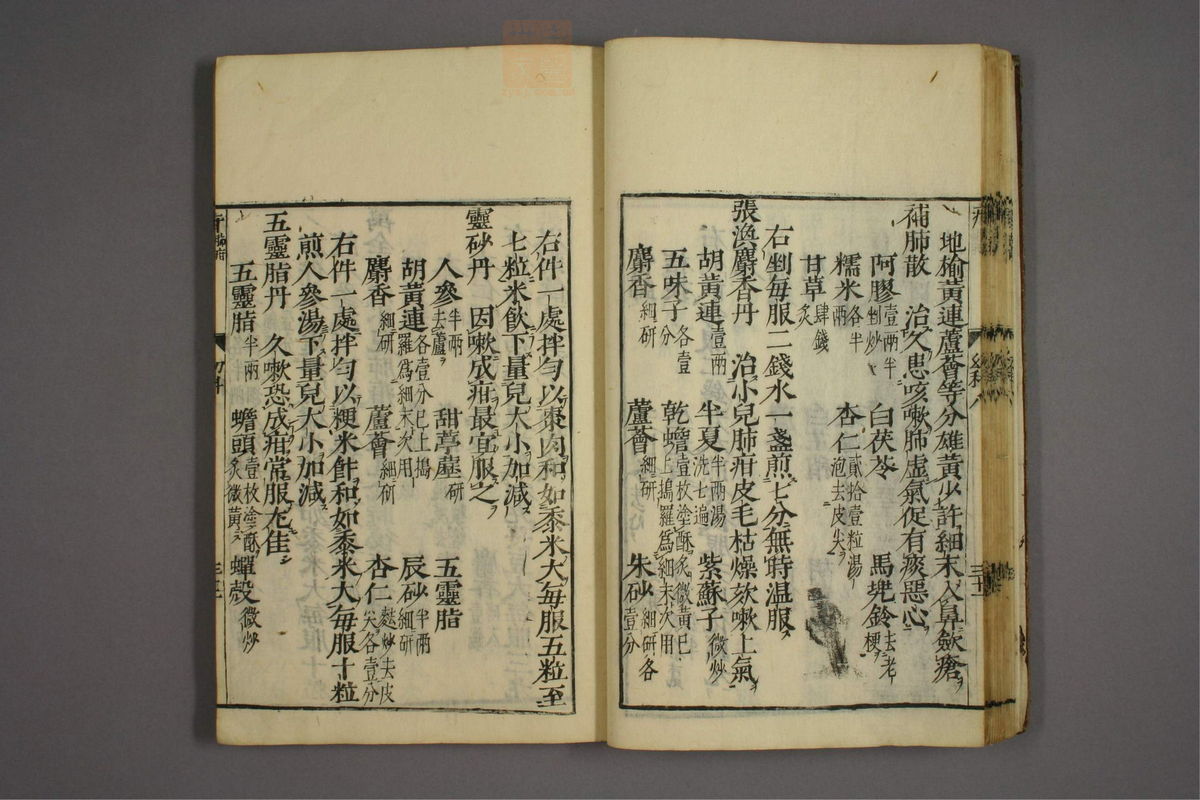 地榆黃連蘆薈等分雄黃少許細末入鼻斂瘡
補肺散 治久患咳嗽肺虛氣促有痰惡心
阿膠壹兩半剉炒 白茯苓 馬兠鈴去老梗
糯米各半兩 杏仁貳拾壹粒湯泡去皮尖
甘草肆錢炙
右剉每服二錢水一盞煎七分無時温服
張渙麝香丹 治小兒肺疳皮毛枯燥欬嗽上氣
胡黃連壹兩 半夏半兩湯洗七遍 紫蘇子微炒
五味子各壹分 乾蟾壹枚塗酥炙微黃已上搗羅為細末次用
麝香細研 蘆薈細研 朱砂細研各壹分
右件一處拌匀以棗肉和如黍米大每服五粒至
七粒米飲下量兒大小加減
靈砂丹 因嗽成疳最宜服之
人參半兩去蘆 甜葶藶研 五靈脂
胡黃連各壹分已上搗羅爲細末次用 辰砂半兩細研
麝香細研 蘆薈細研 杏仁麩炒去皮尖各壹分
右件一處拌匀以粳米飰和如黍米大每服十粒
煎人參湯下量兒大小加減
五靈脂丹 久嗽恐成疳常服尤佳
五靈脂半兩 蟾頭壹枚塗酥炙微黃 蟬殼微炒